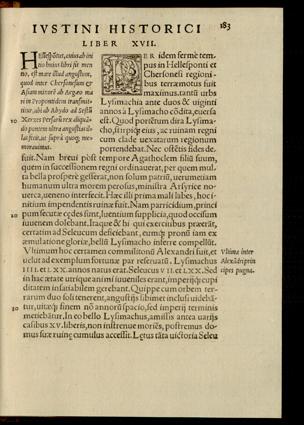 183
IVSTINI HISTORICI
LIBER XVII.
Hellespõtus, cuius ab ini
tio huius libri sit me
no, est mare illud angustum,
quod inter Chersonesum et
Asiam
mari in Propontidem transmit
titur, ubi ab Abydo ad Sestũ
10 Xerxes Persarũ rex
do pontem ultra angustias
memorauimus.
PER idem fermè tem
pus in Hellesponti et
Chersonesi regioni
bus terræmotus fuit
maximus. tantũ urbs
Lysimachia ante duos & uiginti
annos à Lysimacho cõdita, euersa
est. Quod portẽtum dira Lysima
cho, stirpiq; eius, ac ruinam regni
cum clade uexatarum regionum
portendebat. Nec ostẽtis fides de
fuit. Nam breui pòst tempore Agathoclem filiũ suum,
quem in successionem regni ordinauerat, per quem mul
ta bella prosperè gesserat, non solum patriũ, uerumetiam
humanum morem perosus, ministra Arsyrice nouerca,
ueneno interficit. Hæc illi prima mali labes, hoc i
nitium impendentis ruinæ fuit. Nam parricidium, princi
20 pum secutæ cędes sunt, luentium supplicia, quòd occisum
iuuenem dolebant. Itaque & hi qui exercitibus præerãt,
certatim ad Seleucum deficiunt, eumq; pronũ iam ex
æmulatione gloriæ, bellũ Lysimacho inferre compellũt.
Vltimum hoc certamen commilitonũ Alexandri fuit, et
uelut ad exemplum fortunæ par reseruatũ. Lysimachus
IIII et LXX. annos natus erat. Seleucus VII et LXX. Sed
in hac ætate utrique animi iuueniles erant, imperijq; cupi
ditatem insatiabilem gerebant. Quippe cum orbem ter
rarum duo soli tenerent, angustijs sibimet inclusi uidebã
30 tur, uitæq; finem nõ annorũ spacio, sed imperij terminis
metiebãtur. In eo bello Lysimachus, amissis antea uarijs
casibus XV. liberis, non instrenue moriẽs, postremus do
mus suæ ruinę cumulus accessit. Lętus tãta uictoria Seleu
Vltima inter
Alexãdri prin
cipes pugna.